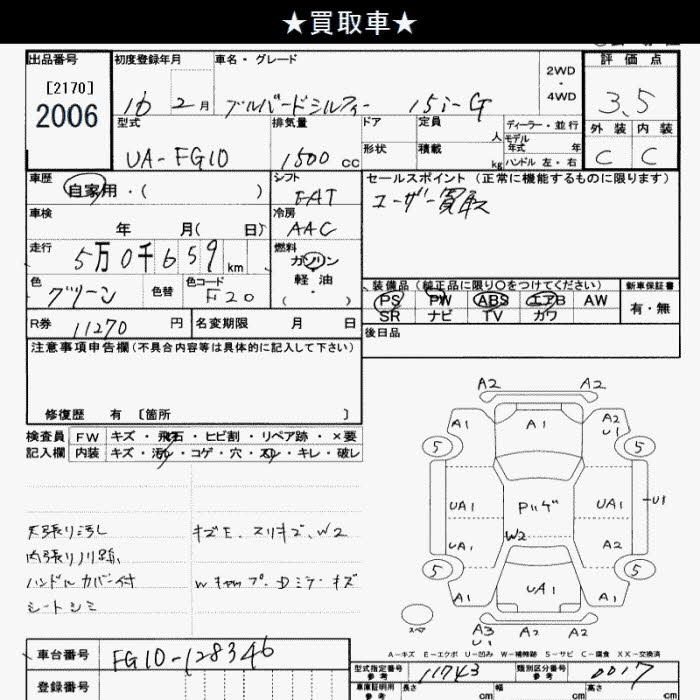 ★買取車★
出品番号 初度登録年月 車名・グレード 2WD・4WD 評価点
[2170]
2006
16 2月 ブルーバードシルフィー 15i-G 3.5
型式 排気量 ドア 定員 人 ディーラー・並行 外装 内装
モデル年式 年
UA-FG10 1500cc 形状 積載 kg ハンドル 左・右 C C
車歴 自家用・( ) シフト FAT セールスポイント (正常に機能するものに限ります)
ユーザー買取
車検 年 月( 日) 冷房 AAC
走行 5万0千659km 燃料 ガソリン
軽油
( ・ )
色 グリーン 色替 色コード F20
装備品 (純正品に限り○をつけてください) 新車保証書
PS PW ABS エアB AW 有・無
SR ナビ TV カワ
R券 11270円 名変期限 月 日
後日品
注意事項申告欄 (不具合内容等は具体的に記入して下さい)
修復歴 有 〔箇所 〕
検査員 FW キズ・飛石・ヒビ割・リペア跡・×要
記入欄 内装 キズ・汚れ・コゲ・穴・スレ・キレ・破レ
天張り汚し キズE、スリキズ、W2
ハンドルカバー付
シートシミ
A2 A2
A1 A1 A2
U1
5 5
UA1 UA1 U1
UA1 W2 A2
5 5
A1 UA1 A1
スペア
A3 A2 A2
U1
A-キズ E-エクボ U-凹み W-補修跡 S-サビ C-腐食 XX-交換済
車台番号 FG10-128346
型式指定番号 参考 11743 類別区分番号 参考 0017
登録番号
車庫証明用 参考 長さ cm 幅 cm 高さ cm